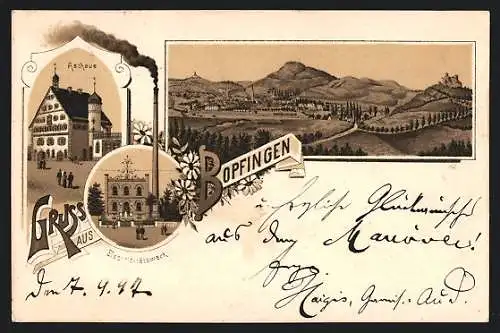 Rathaus
BOPFINGEN
GRUSS
AUS
Electricitätswerk
u. herzliche Glückwünsche
aus dem Manöver!
Den 7. 9. 97